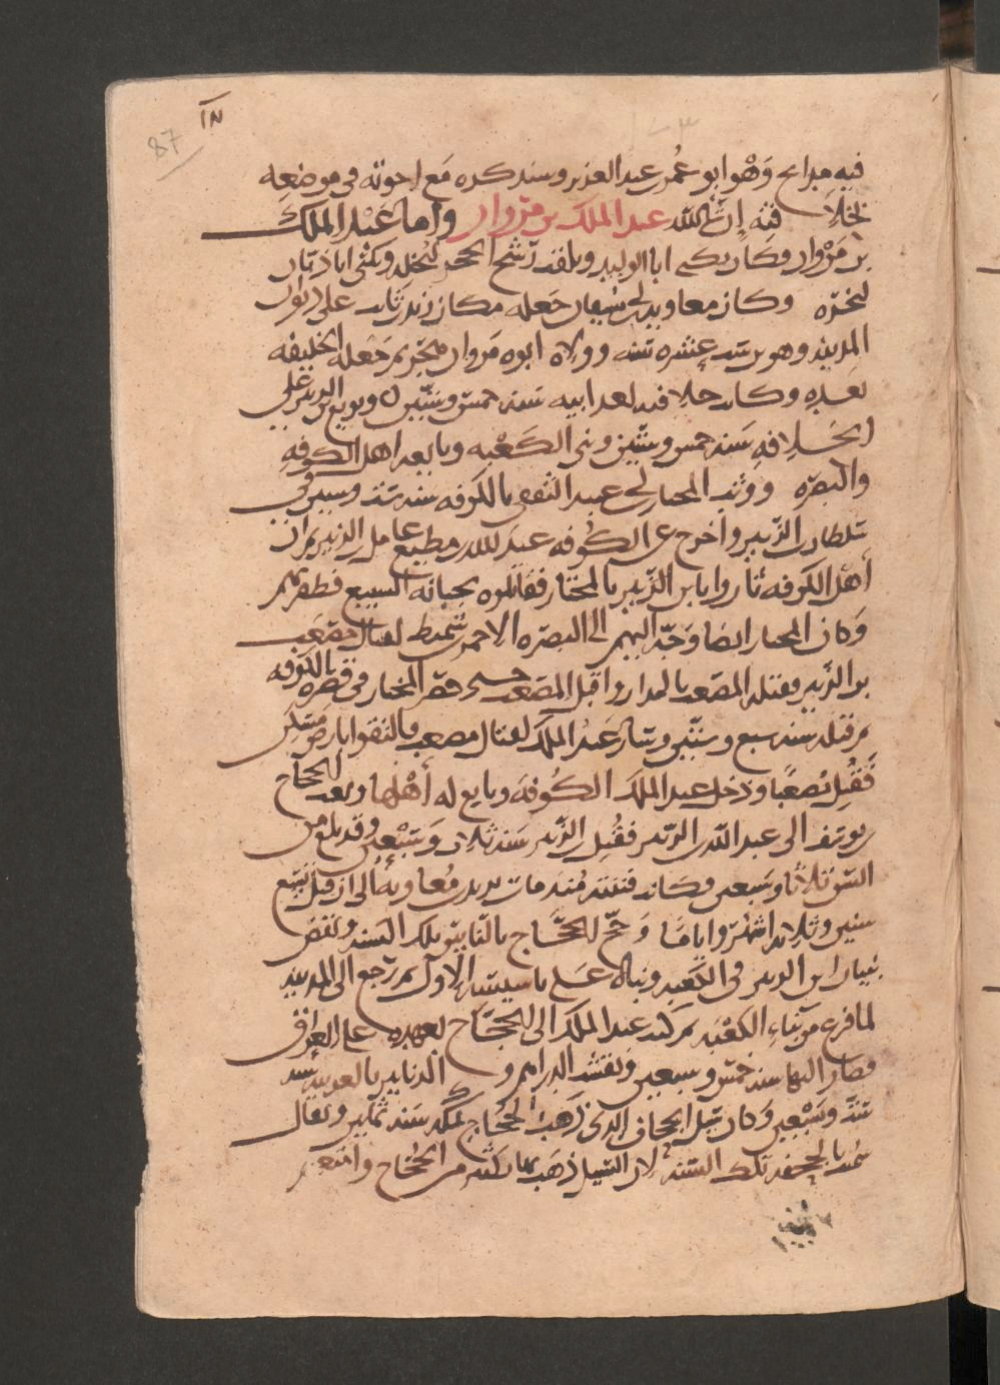 87
فيه مدايح وهو ابو عمر بن عبد العزيز وسنذكره مع اخوته في موضعه
فيه ان شا الله عبد الملك بن مروان واما عبد الملك
بن مروان وكان يكنى ابا الوليد ويلقب رشح الحجر لبخله ويكنى ابا ذبان
لبخره وكان معاوية بن ابي سفيان جعله مكان زيد بن ثابت على ديوان
المدينة وهو بن ست عشره سنه وولاه ابوه مروان هجر ثم جعله الخليفه
بعده وكانت خلافته بعد ابيه سنه خمس وستين وبويع بن الزبير على
الخلافه سنه خمس وستين وبنى الكعبه وبايعه اهل الكوفه
والبصره ووثب المختار بن ابي عبيد الثقفي بالكوفه سنه ست وستين في
سلطان بن الزبير واخرج عن الكوفه عبد الله بن مطيع عامل بن الزبير ثم ان
أهل الكوفه ثاروا بابن الزبير بالمختار فقاتلوه بجبانة السبيع فظفر بهم
وكان المختار ايضا وجه اليهم الى البصره الاحمر بن شميط لقتال مصعب
بن الزبير فقتله المصعب بالمدار واقبل المصعب حتى حصر المختار في قصره بالكوفه
ثم قتله سنه سبع وستين وسار عبد الملك لقتال مصعب فالتقوا بارض مسكن
فقتل مصعبا ودخل عبد الملك الكوفه وبايع له أهلها وبعث الحجاج
بن يوسف الى عبد الله بن الزبير فقتل بن الزبير سنه ثلاث وسبعين وقد بلغ من
السن ثلاثا وسبعين وكانت فتنته منذ مات يزيد بن معاوية الى ان قتل تسع
سنين وثلاثه اشهر واياما وحج الحجاج بالناس تلك السنه ونقض
بنيان ابن الزبير في الكعبه وبناه على تاسيسه الاول ثم رجع الى المدينه
لما فرغ من بناء الكعبه ثم كتب عبد الملك الى الحجاج بعهده على العراق
فصار اليها سنه خمس وسبعين ونقش الدراهم والدنانير بالعربيه سنه
ست وسبعين وكان سيل الجحاف الذي ذهب الحجاج بمكه سنه ثمنين ويقال
سمت بالجحفه تلك السنه لان السيل ذهب بمن كثير من الحجاج وامتعتهم